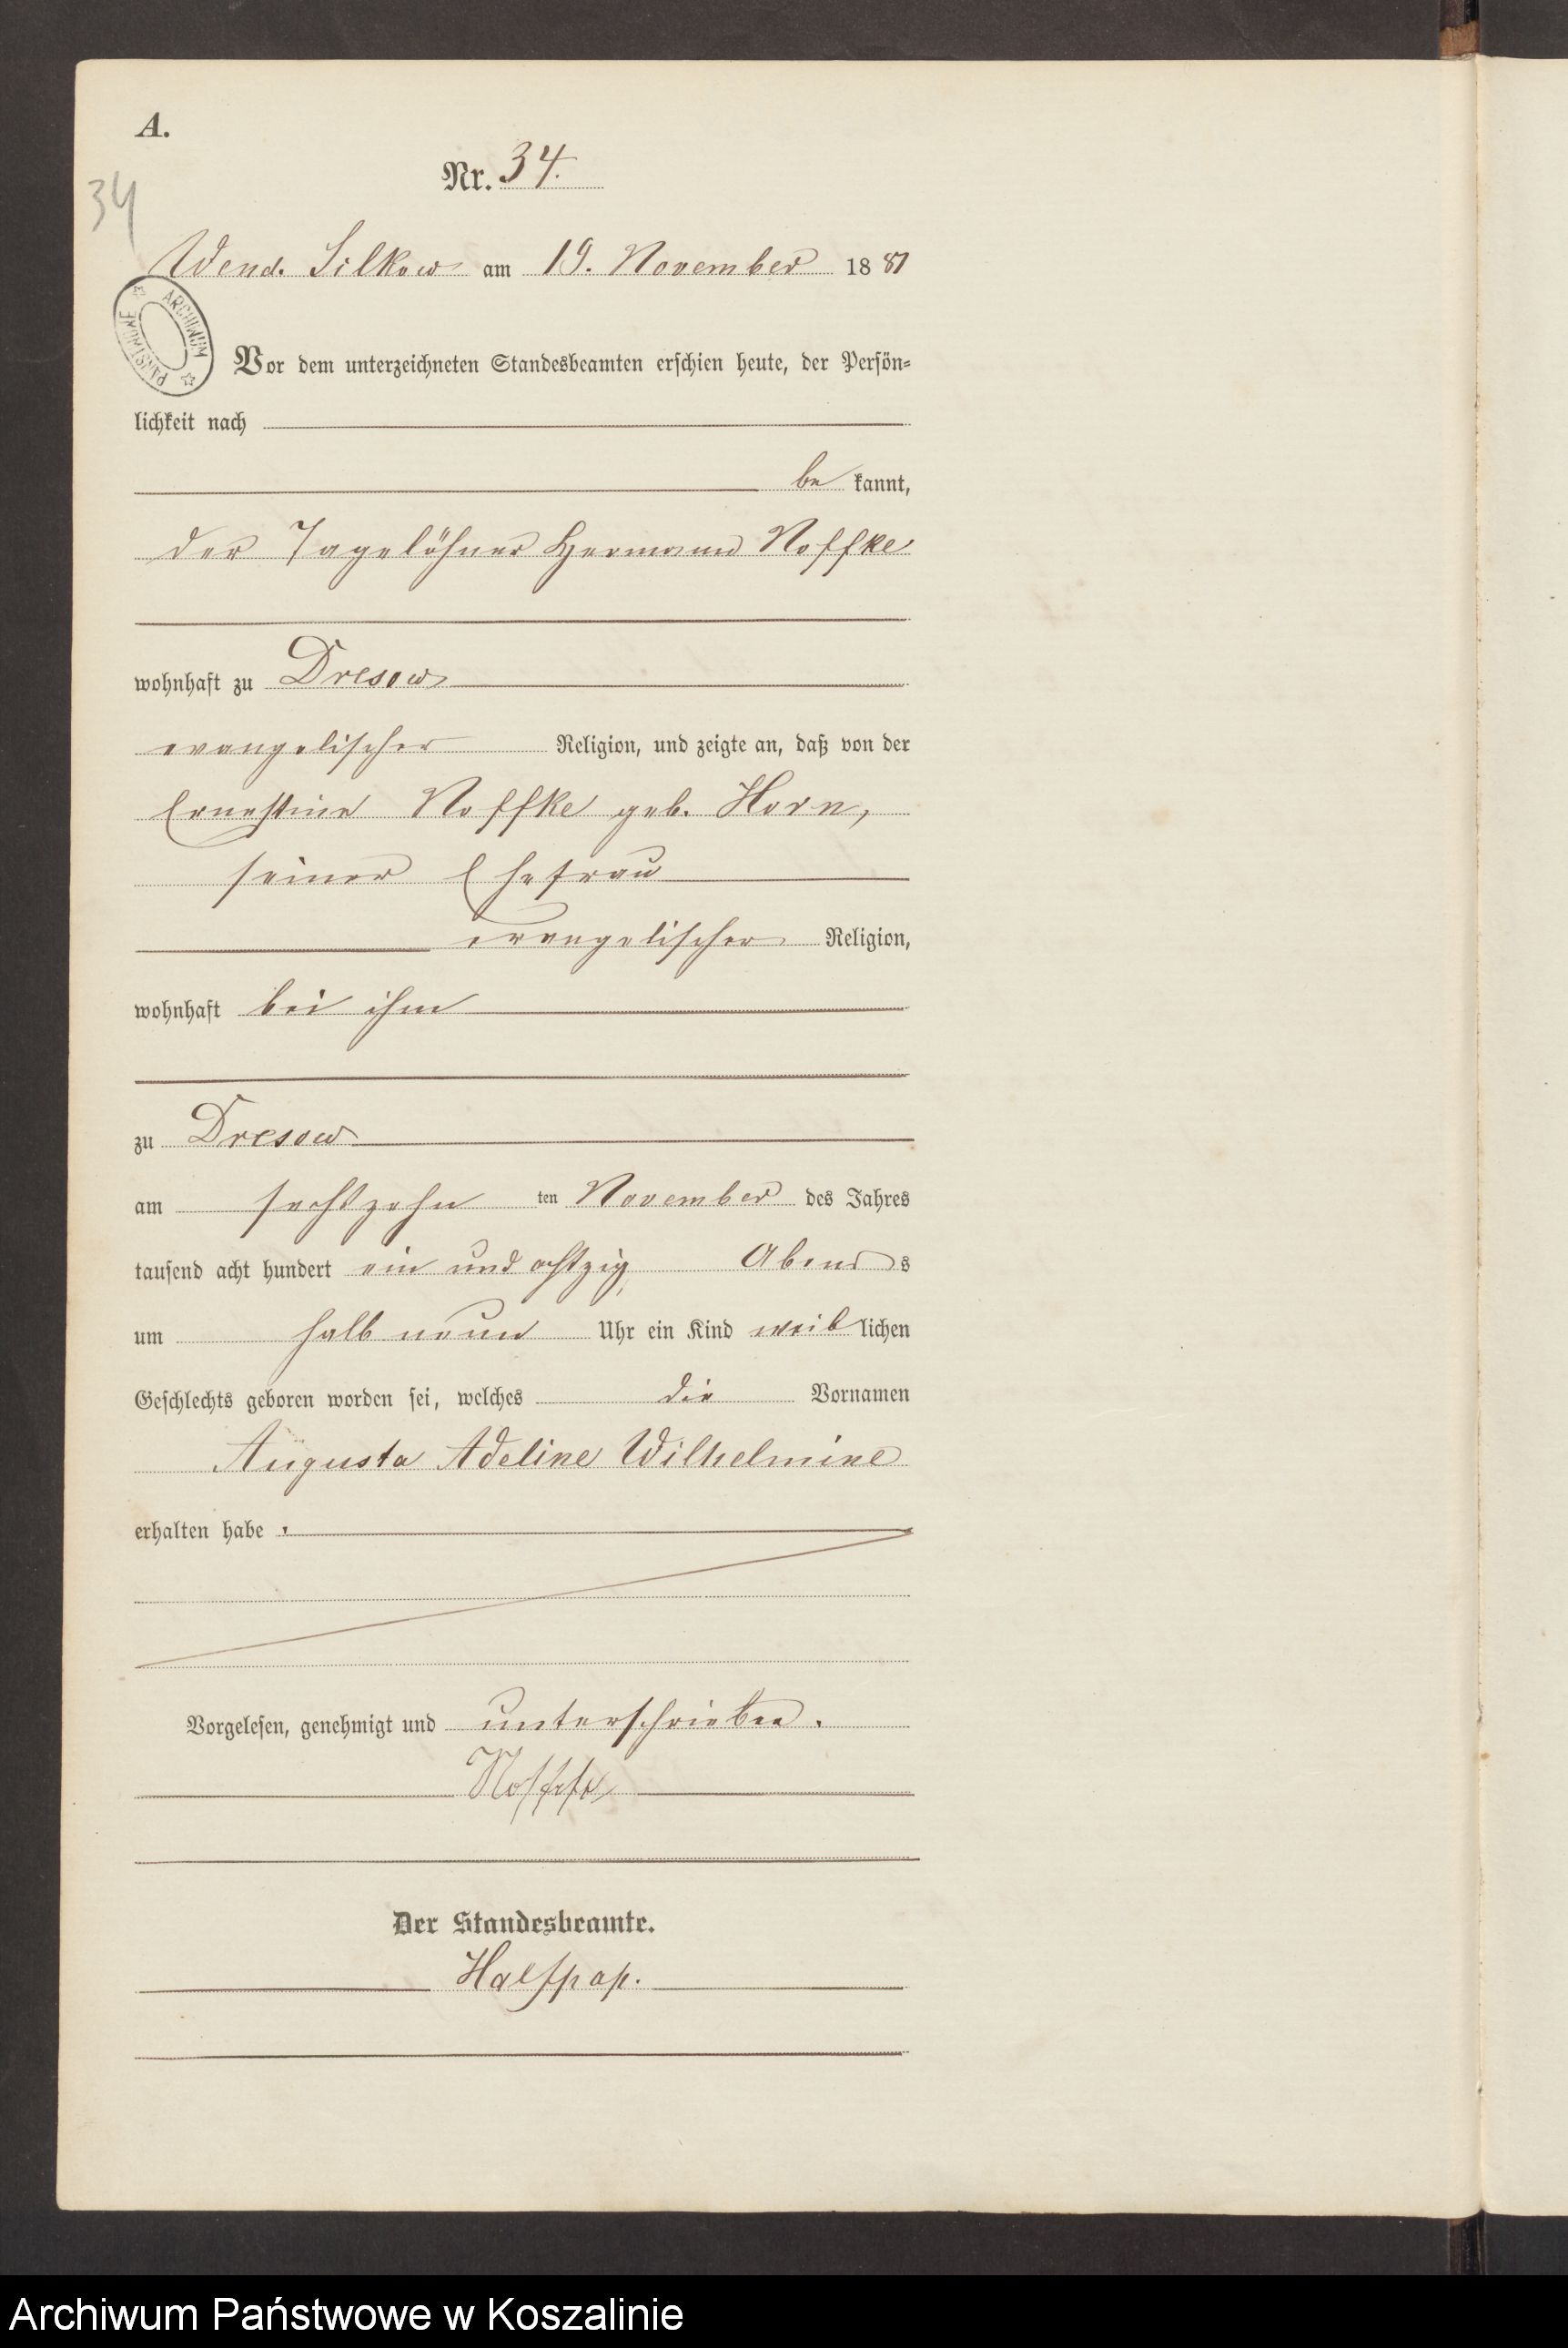 A.
Nr. 34.
34
Wend. Silkow am 19. November 1881
ARCHIWUM PAŃSTWOWE
Vor dem unterzeichneten Standesbeamten erschien heute, der Persön=
lichkeit nach
be kannt,
der Tagelöhner Hermann Noffke
wohnhaft zu Dresow
evangelischer Religion, und zeigte an, daß von der
Ernestine Noffke geb. Horn,
seiner Ehefrau
evangelischer Religion,
wohnhaft bei ihm
zu Dresow
am sechszehn ten November des Jahres
tausend acht hundert ein und achtzig Abend s
um halb neun Uhr ein Kind weib lichen
Geschlechts geboren worden sei, welches die Vornamen
Augusta Adeline Wilhelmine
erhalten habe .
Vorgelesen, genehmigt und unterschrieben.
Noffke
Der Standesbeamte.
Halfpap.
Archiwum Państwowe w Koszalinie